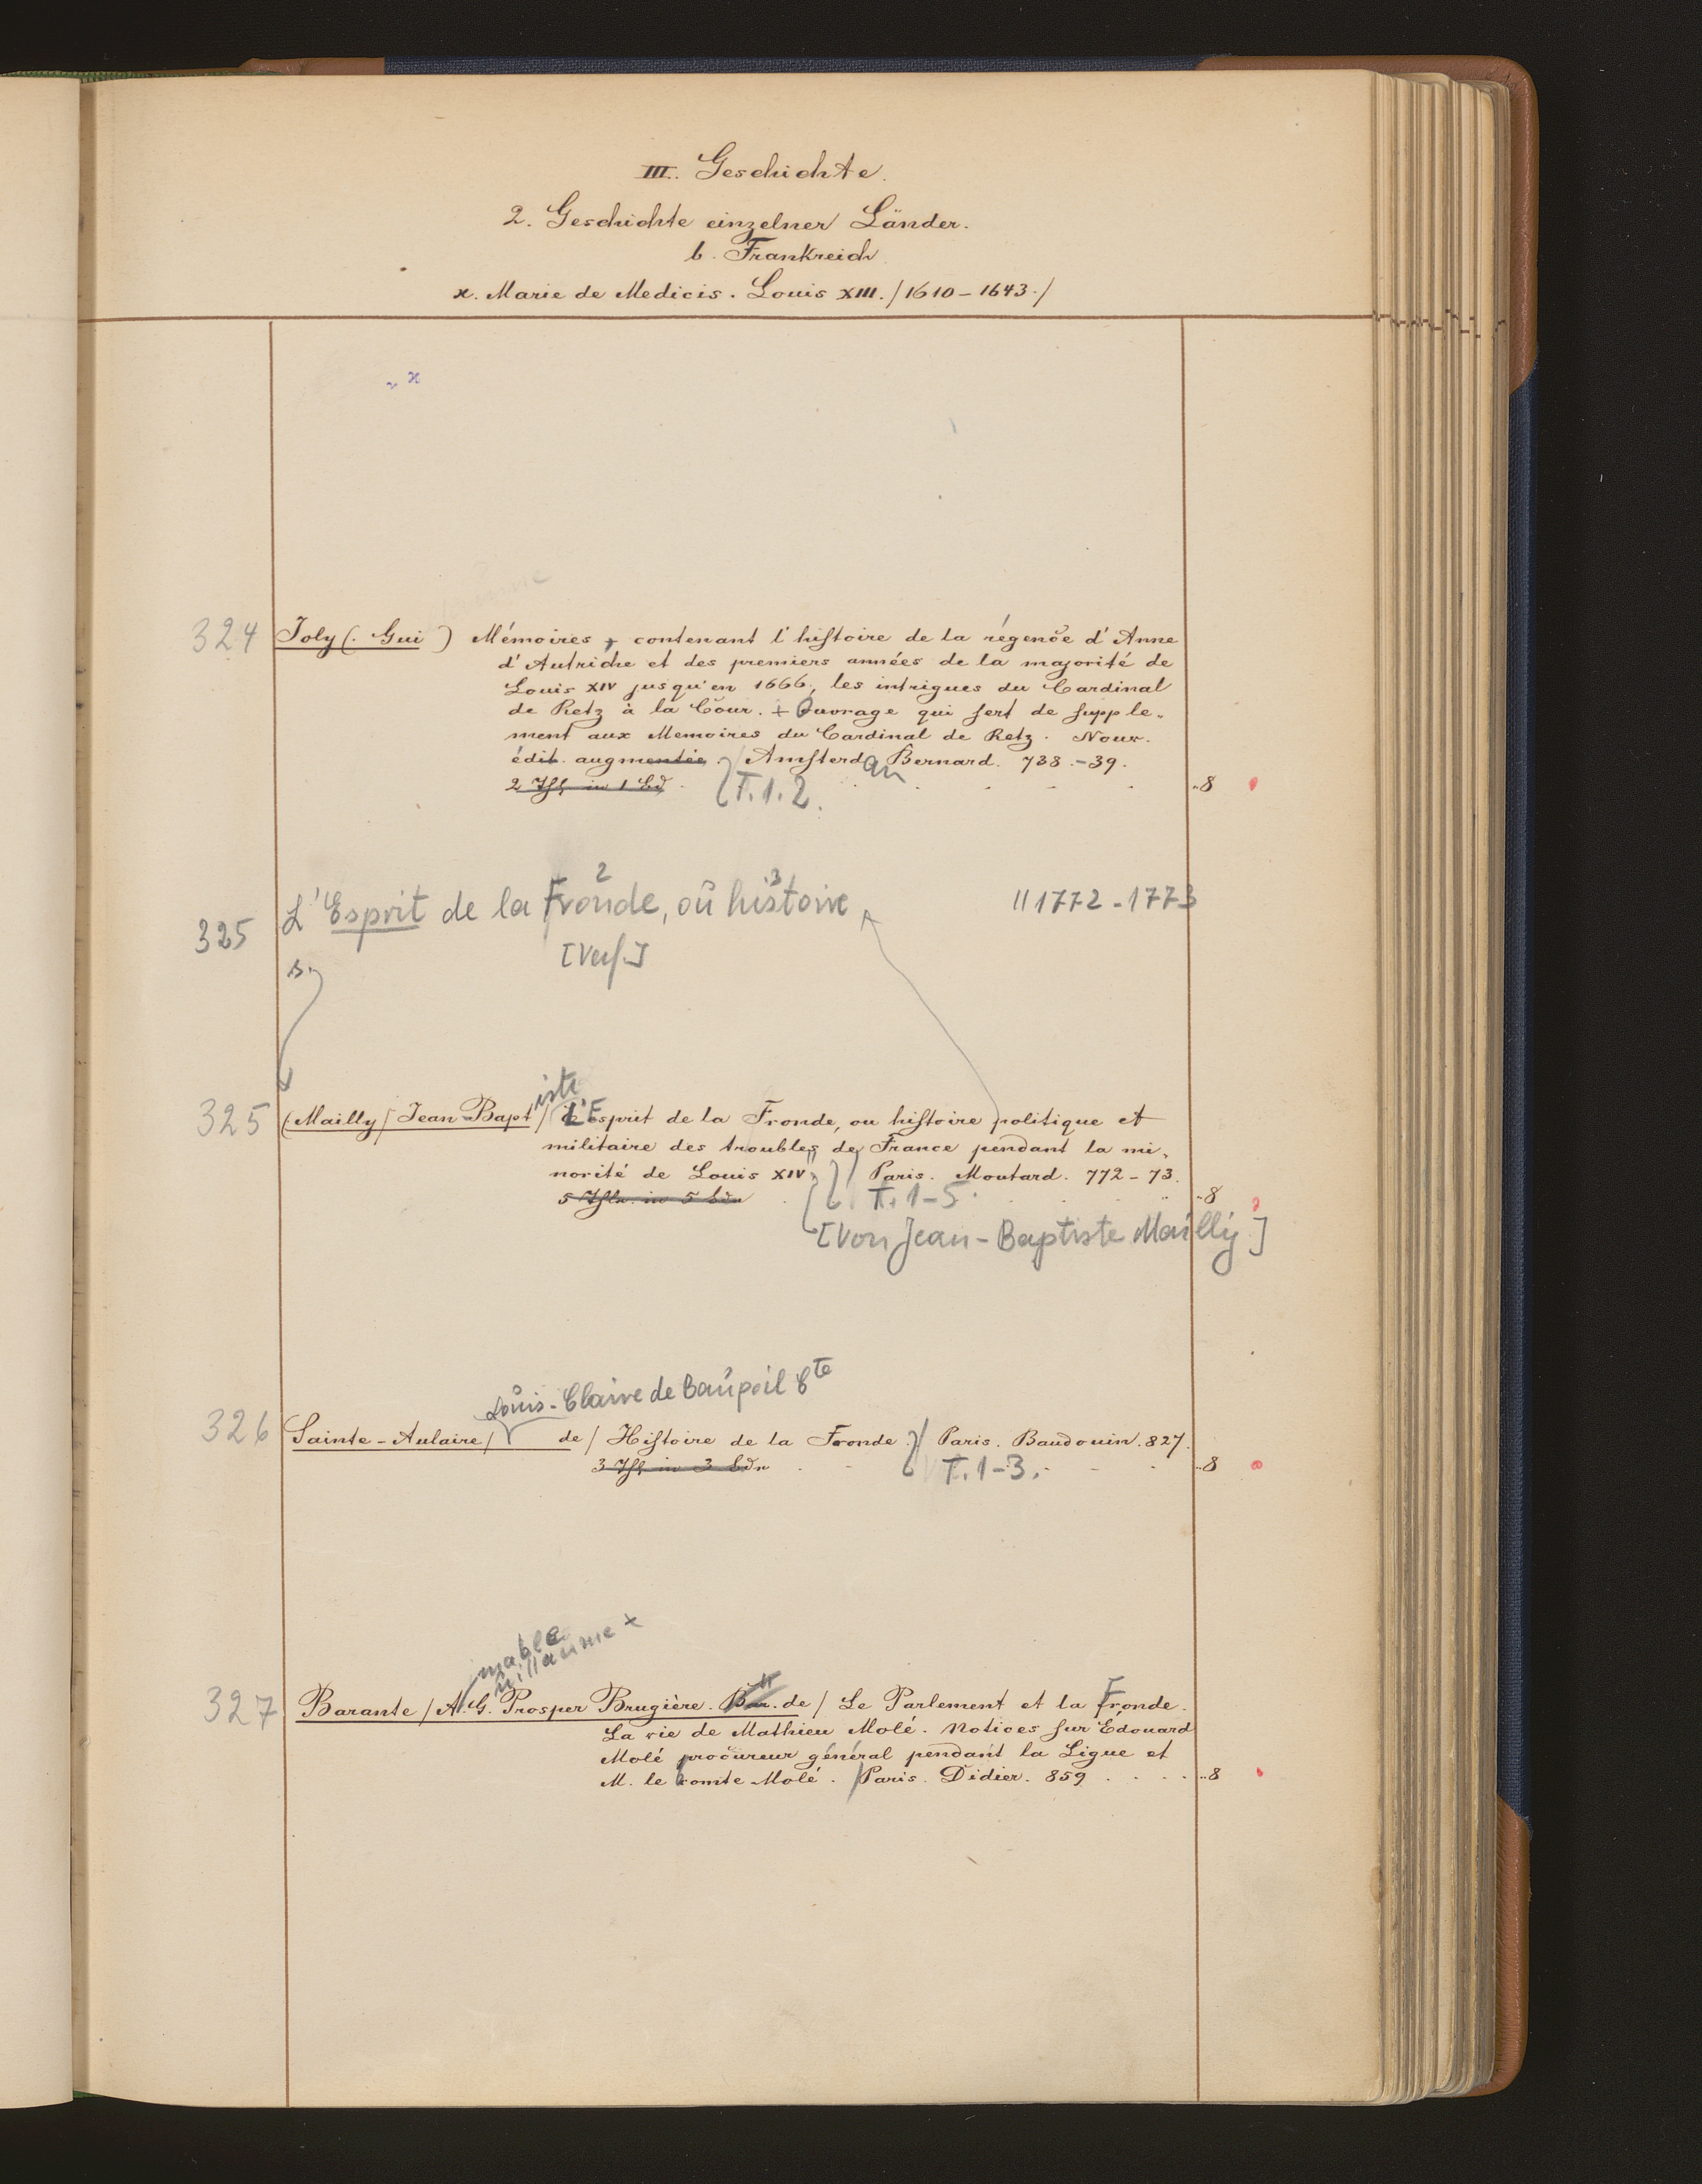 III. Geschichte.
2. Geschichte einzelner Länder.
b. Frankreich
x. Marie de Medicis. Louis XIII. /1610-1643./
324 Joly (. Gui ) Mémoires, contenant l'histoire de la régence d'Anne
d'Autriche et des premiers années de la majorité de
Louis XIV jusqu'en 1666, les intrigues du Cardinal
de Retz à la Cour. + Ouvrage qui sert de supple-
ment aux Memoires du Cardinal de Retz. Nouv.
édit. augmentée. / Amsterdam Bernard. 738.-39.
2 Thl in 1 Bd. T. 1. 2. 8
2 3
325 L'Esprit de la Fronde, ou histoire 11 1772-1773
s. [Verf.]
iste
325 (Mailly / Jean Bapt / L'Esprit de la Fronde, ou histoire politique et
militaire des troubles de France pendant la mi-
norité de Louis XIV. / Paris. Moutard. 772-73.
5 Thle. in 5 Bdn T. 1-5. 8
[Von Jean-Baptiste Mailly]
Louis-Claire de Baupoil Cte
326 Sainte-Aulaire / de / Histoire de la Fronde. / Paris. Baudouin. 827.
3 Thl in 3 Bdn T. 1-3. 8
mable
uillaume x
327 Barante / A. G. Prosper Brugière. Bar. de / Le Parlement et la Fronde.
La vie de Mathieu Molé. Notices sur Édouard
Molé procureur général pendant la Ligue et
M. le comte Molé. / Paris. Didier. 859 8